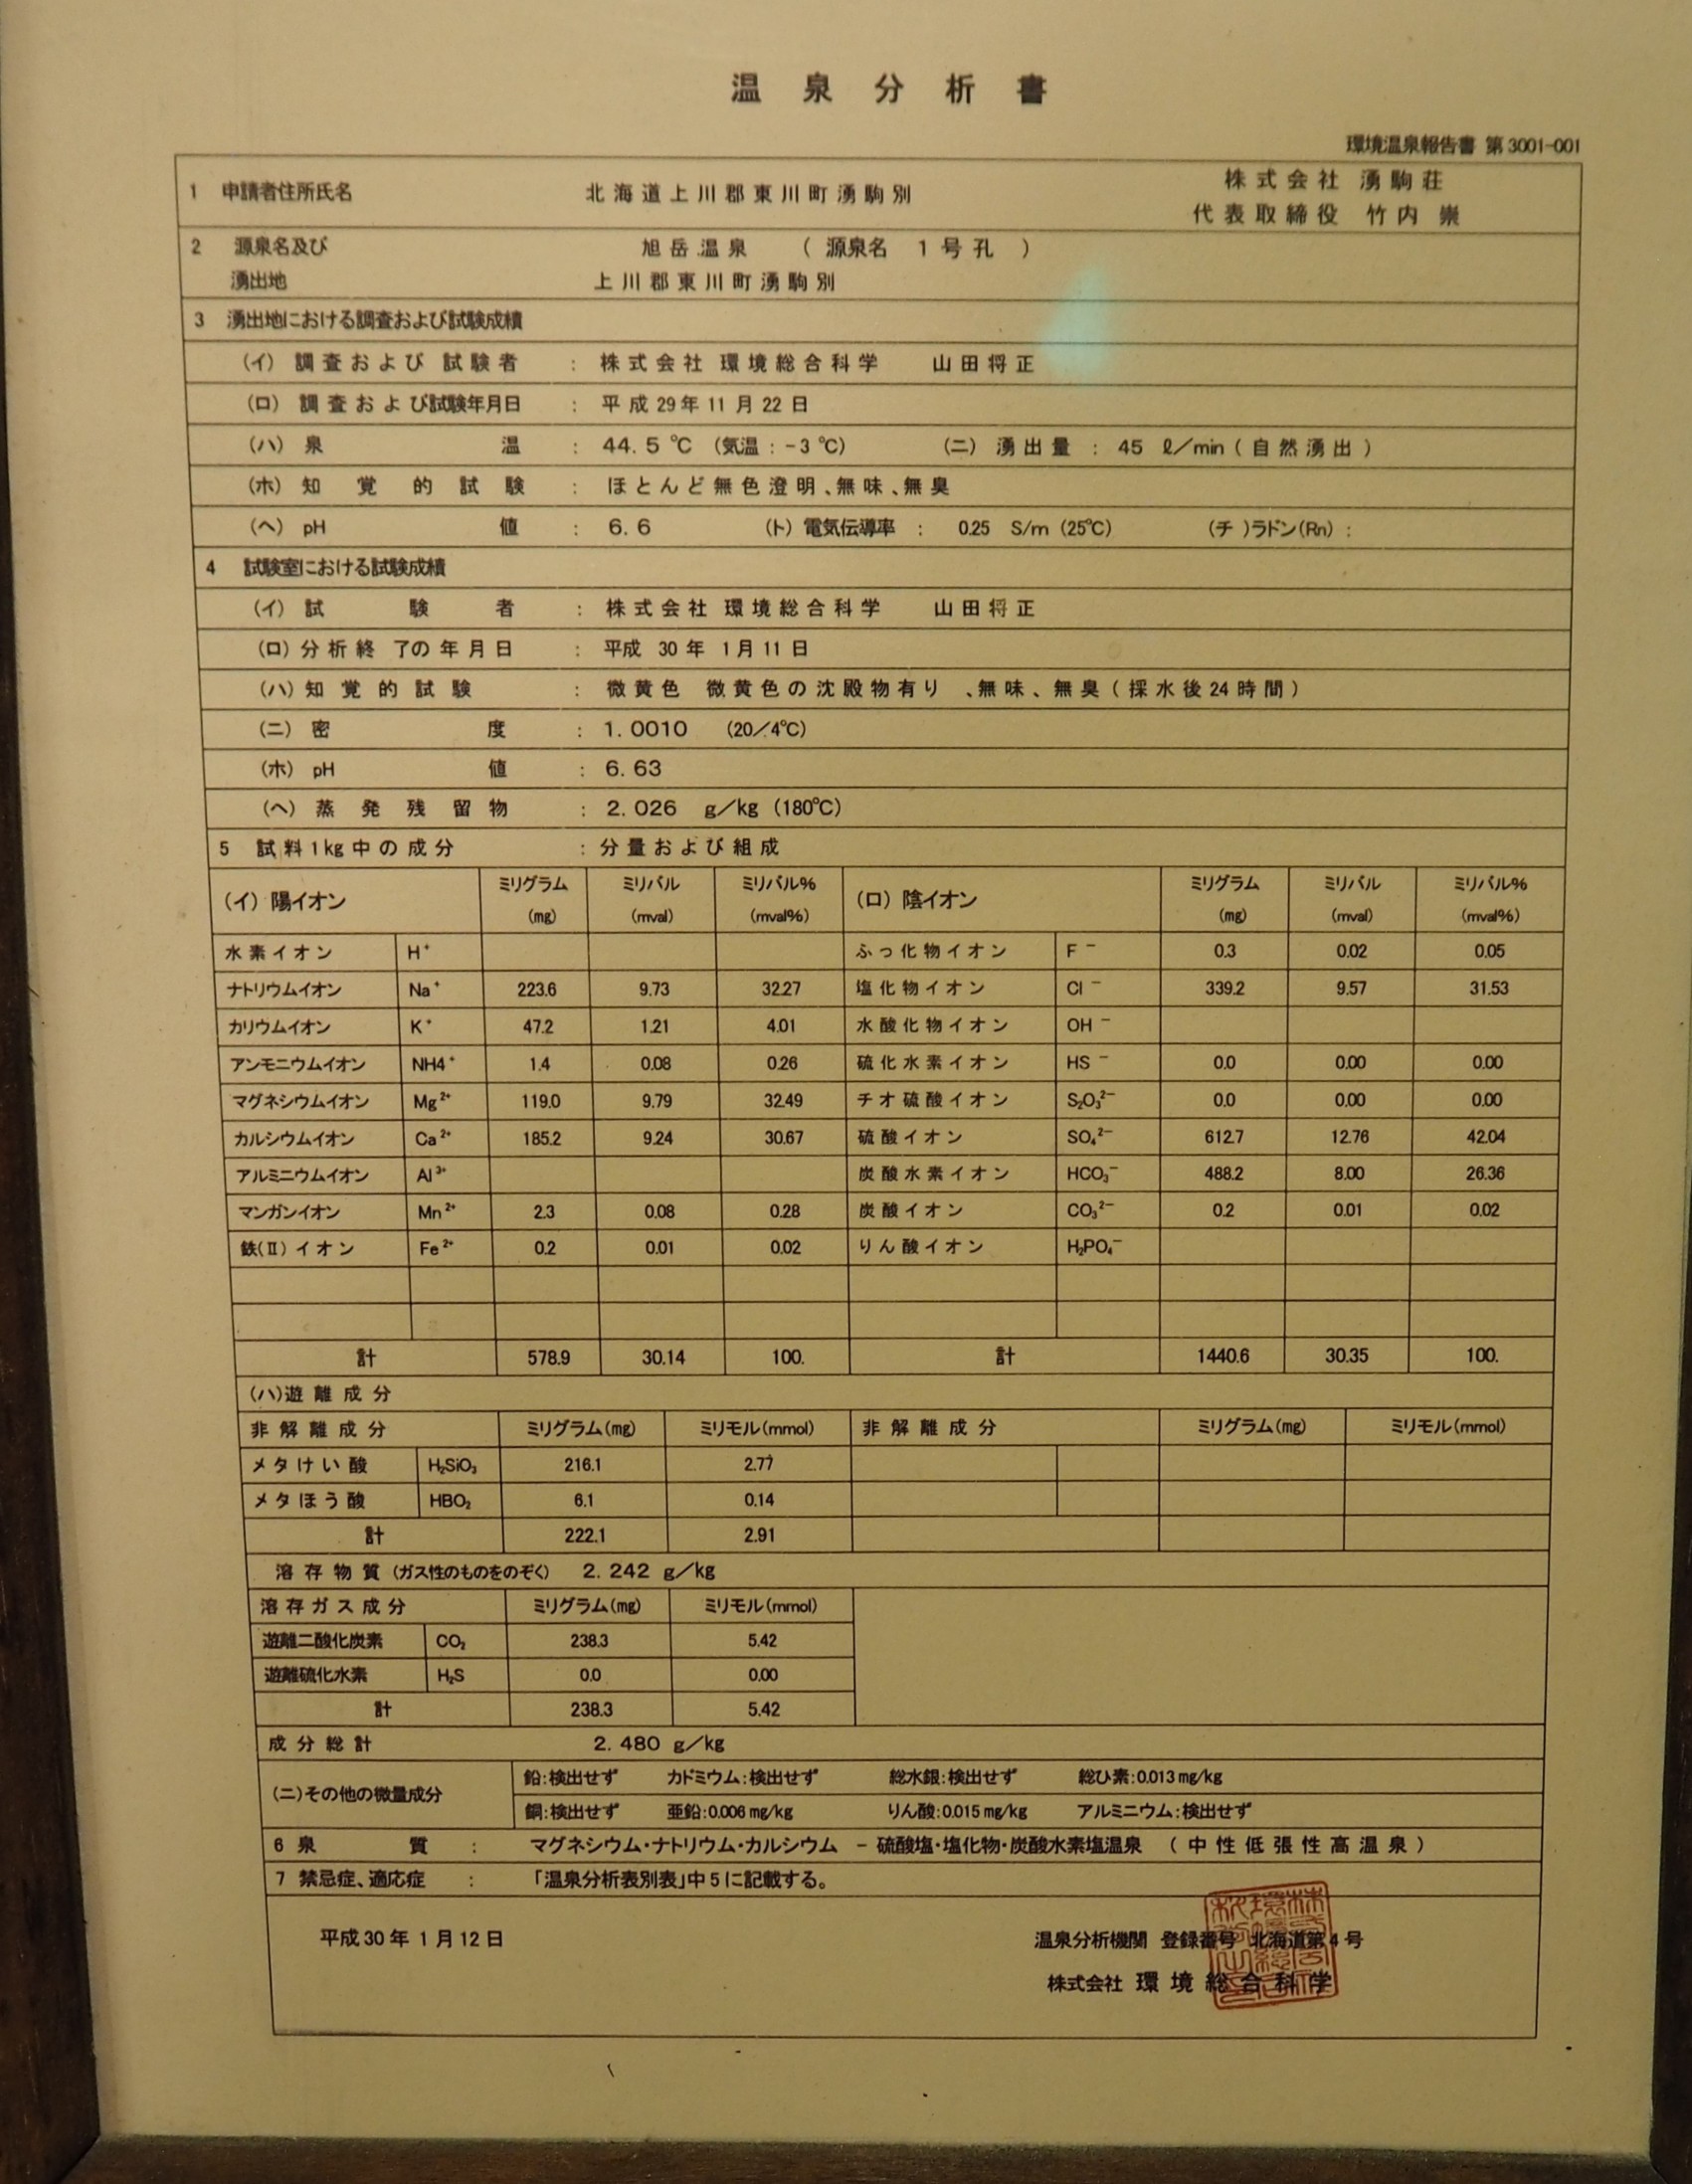 温泉分析書
環境温泉報告書 第3001-001
1 申請者住所氏名 北海道上川郡東川町湧駒別 株式会社 湧駒荘
代表取締役 竹内 崇
2 源泉名及び 旭岳温泉 (源泉名 1号孔)
湧出地 上川郡東川町湧駒別
3 湧出地における調査および試験成績
(イ) 調査および試験者 : 株式会社 環境総合科学 山田将正
(ロ) 調査および試験年月日 : 平成29年11月22日
(ハ) 泉温 : 44.5℃ (気温:-3℃) (ニ) 湧出量 : 45 ℓ/min(自然湧出)
(ホ) 知覚的試験 : ほとんど無色澄明、無味、無臭
(ヘ) pH値 : 6.6 (ト) 電気伝導率 : 0.25 S/m (25℃) (チ)ラドン(Rn) :
4 試験室における試験成績
(イ) 試験者 : 株式会社 環境総合科学 山田将正
(ロ) 分析終了の年月日 : 平成 30年 1月11日
(ハ) 知覚的試験 : 微黄色 微黄色の沈殿物有り 、無味、無臭(採水後24時間)
(ニ) 密度 : 1.0010 (20/4℃)
(ホ) pH値 : 6.63
(ヘ) 蒸発残留物 : 2.026 g/kg (180℃)
5 試料1kg中の成分 : 分量および組成
(イ) 陽イオン ミリグラム(mg) ミリバル(mval) ミリバル%(mval%) (ロ) 陰イオン ミリグラム(mg) ミリバル(mval) ミリバル%(mval%)
水素イオン H⁺ ふっ化物イオン F⁻ 0.3 0.02 0.05
ナトリウムイオン Na⁺ 223.6 9.73 32.27 塩化物イオン Cl⁻ 339.2 9.57 31.53
カリウムイオン K⁺ 47.2 1.21 4.01 水酸化物イオン OH⁻
アンモニウムイオン NH4⁺ 1.4 0.08 0.26 硫化水素イオン HS⁻ 0.0 0.00 0.00
マグネシウムイオン Mg²⁺ 119.0 9.79 32.49 チオ硫酸イオン S₂O₃²⁻ 0.0 0.00 0.00
カルシウムイオン Ca²⁺ 185.2 9.24 30.67 硫酸イオン SO₄²⁻ 612.7 12.76 42.04
アルミニウムイオン Al³⁺ 炭酸水素イオン HCO₃⁻ 488.2 8.00 26.36
マンガンイオン Mn²⁺ 2.3 0.08 0.28 炭酸イオン CO₃²⁻ 0.2 0.01 0.02
鉄(Ⅱ)イオン Fe²⁺ 0.2 0.01 0.02 りん酸イオン H₂PO₄⁻
計 578.9 30.14 100. 計 1440.6 30.35 100.
(ハ)遊離成分
非解離成分 ミリグラム(mg) ミリモル(mmol) 非解離成分 ミリグラム(mg) ミリモル(mmol)
メタけい酸 H₂SiO₃ 216.1 2.77
メタほう酸 HBO₂ 6.1 0.14
計 222.1 2.91
溶存物質(ガス性のものをのぞく) 2.242 g/kg
溶存ガス成分 ミリグラム(mg) ミリモル(mmol)
遊離二酸化炭素 CO₂ 238.3 5.42
遊離硫化水素 H₂S 0.0 0.00
計 238.3 5.42
成分総計 2.480 g/kg
(ニ)その他の微量成分 鉛:検出せず カドミウム:検出せず 総水銀:検出せず 総ひ素:0.013mg/kg
銅:検出せず 亜鉛:0.006mg/kg りん酸:0.015mg/kg アルミニウム:検出せず
6 泉質 : マグネシウム・ナトリウム・カルシウム - 硫酸塩・塩化物・炭酸水素塩温泉 (中性低張性高温泉)
7 禁忌症、適応症 : 「温泉分析表別表」中5に記載する。
平成30年1月12日 温泉分析機関 登録番号 北海道第4号
株式会社 環境総合科学